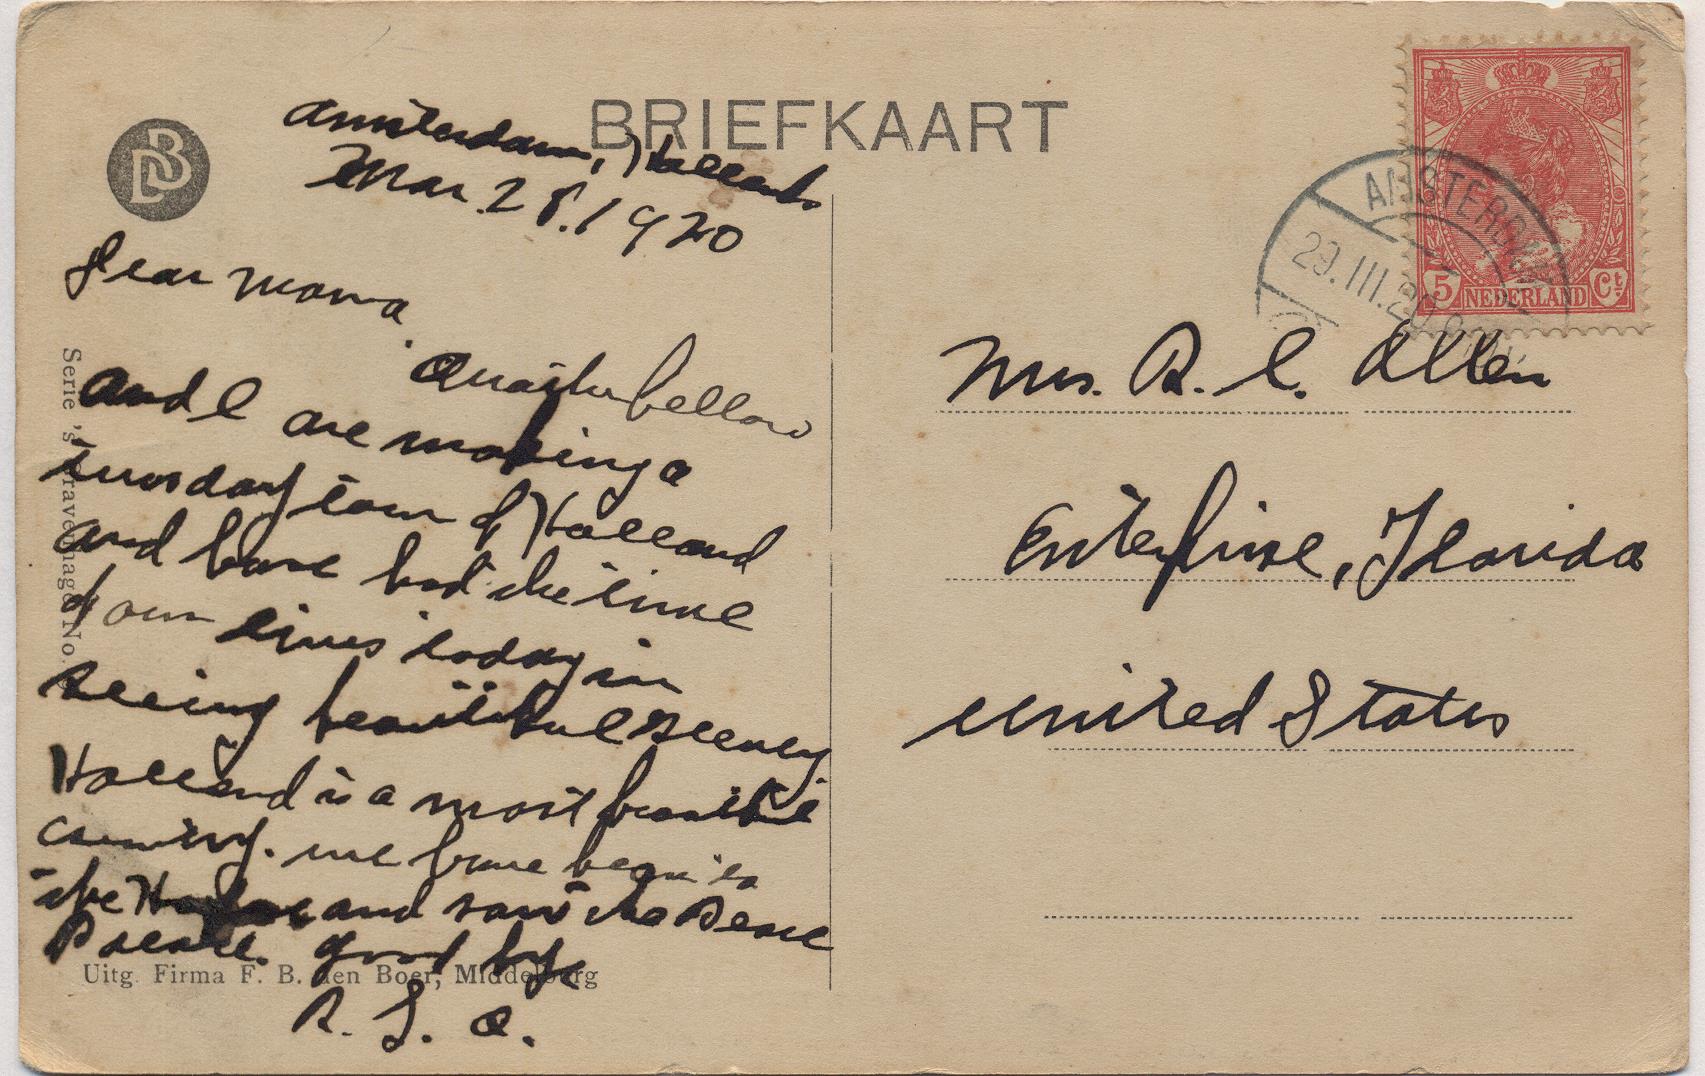 BRIEFKAART
DB
Amsterdam, Holland
Mar. 28. 1920
Dear Mama
Another fellow
and I are making a
two day tour of Holland
and have had the time
of our lives today in
seeing beautiful scenery
Holland is a most beautiful
country. We have been to
the Hague and saw the Peace
Palace. Good bye
R. L. A.
Serie 's Gravenhage No.
Uitg. Firma F. B. den Boer, Middelburg
AMSTERDAM
29.III.20
5 NEDERLAND Ct.
Mrs. R. L. Allen
Enterprise, Florida
United States